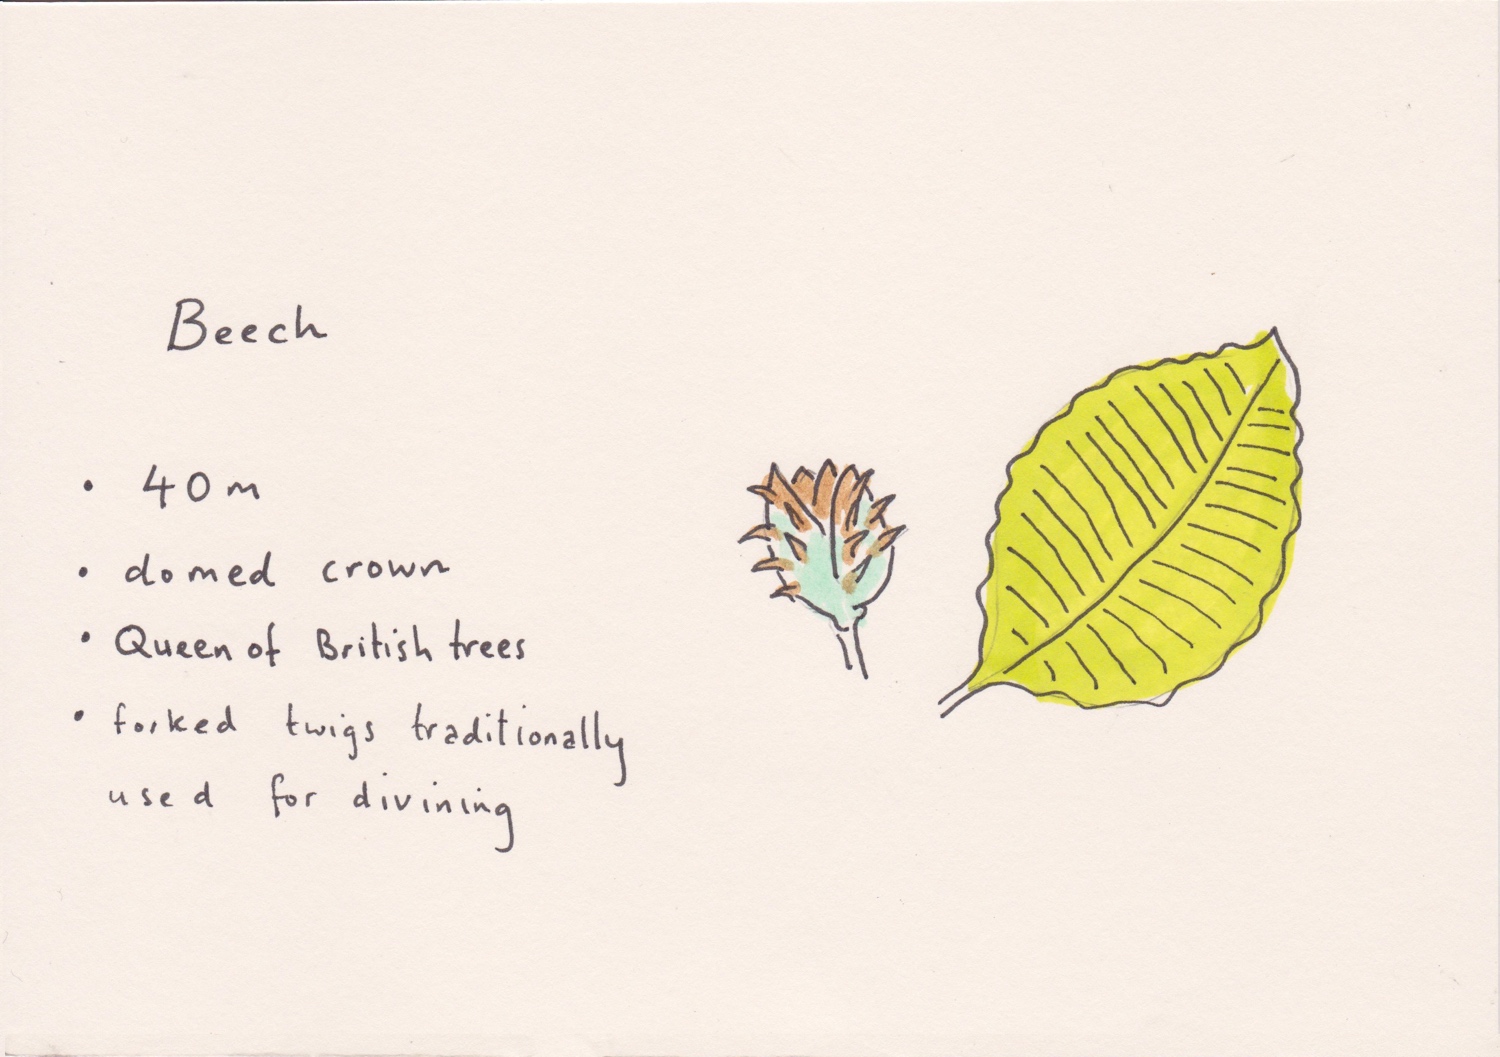 Beech
• 40m
• domed crown
• Queen of British trees
• forked twigs traditionally
used for divining